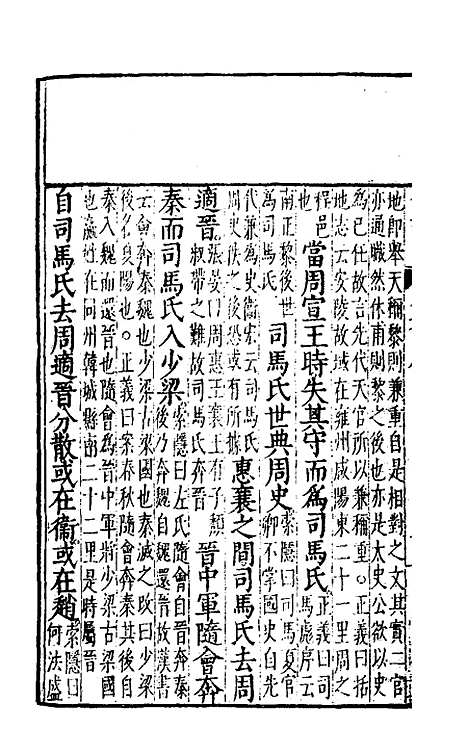 地即舉天稱黎則兼重自是相對之文其實二官
亦通職然休甫則黎之後也亦是太史公欲以史
爲已任故言先代天官所以兼稱重。正義曰括
地志云安陵故城在雍州咸陽東二十一里周之
程邑也當周宣王時失其守而爲司馬氏正義曰司馬彪序云
南正黎後世爲司馬氏司馬氏世典周史索隱曰司馬夏官卿不掌國史自先
代兼爲史衛宏云司馬氏周史佚之後或有所據惠襄之間司馬氏去周
適晉張晏曰周惠王襄王有子頹叔帶之難故司馬氏奔晉晉中軍隨會奔
秦而司馬氏入少梁索隱曰左氏隨會自晉奔秦後乃奔魏自魏還晉故漢書
云會奔秦魏也少梁古梁國也秦滅之改曰少梁
後名夏陽也。正義曰案春秋隨會奔秦其後自
秦入魏而還晉也隨會爲晉中軍將少梁古梁國
也嬴姓在同州韓城縣南二十二里是時屬晉
自司馬氏去周適晉分散或在衛或在趙索隱曰何法盛